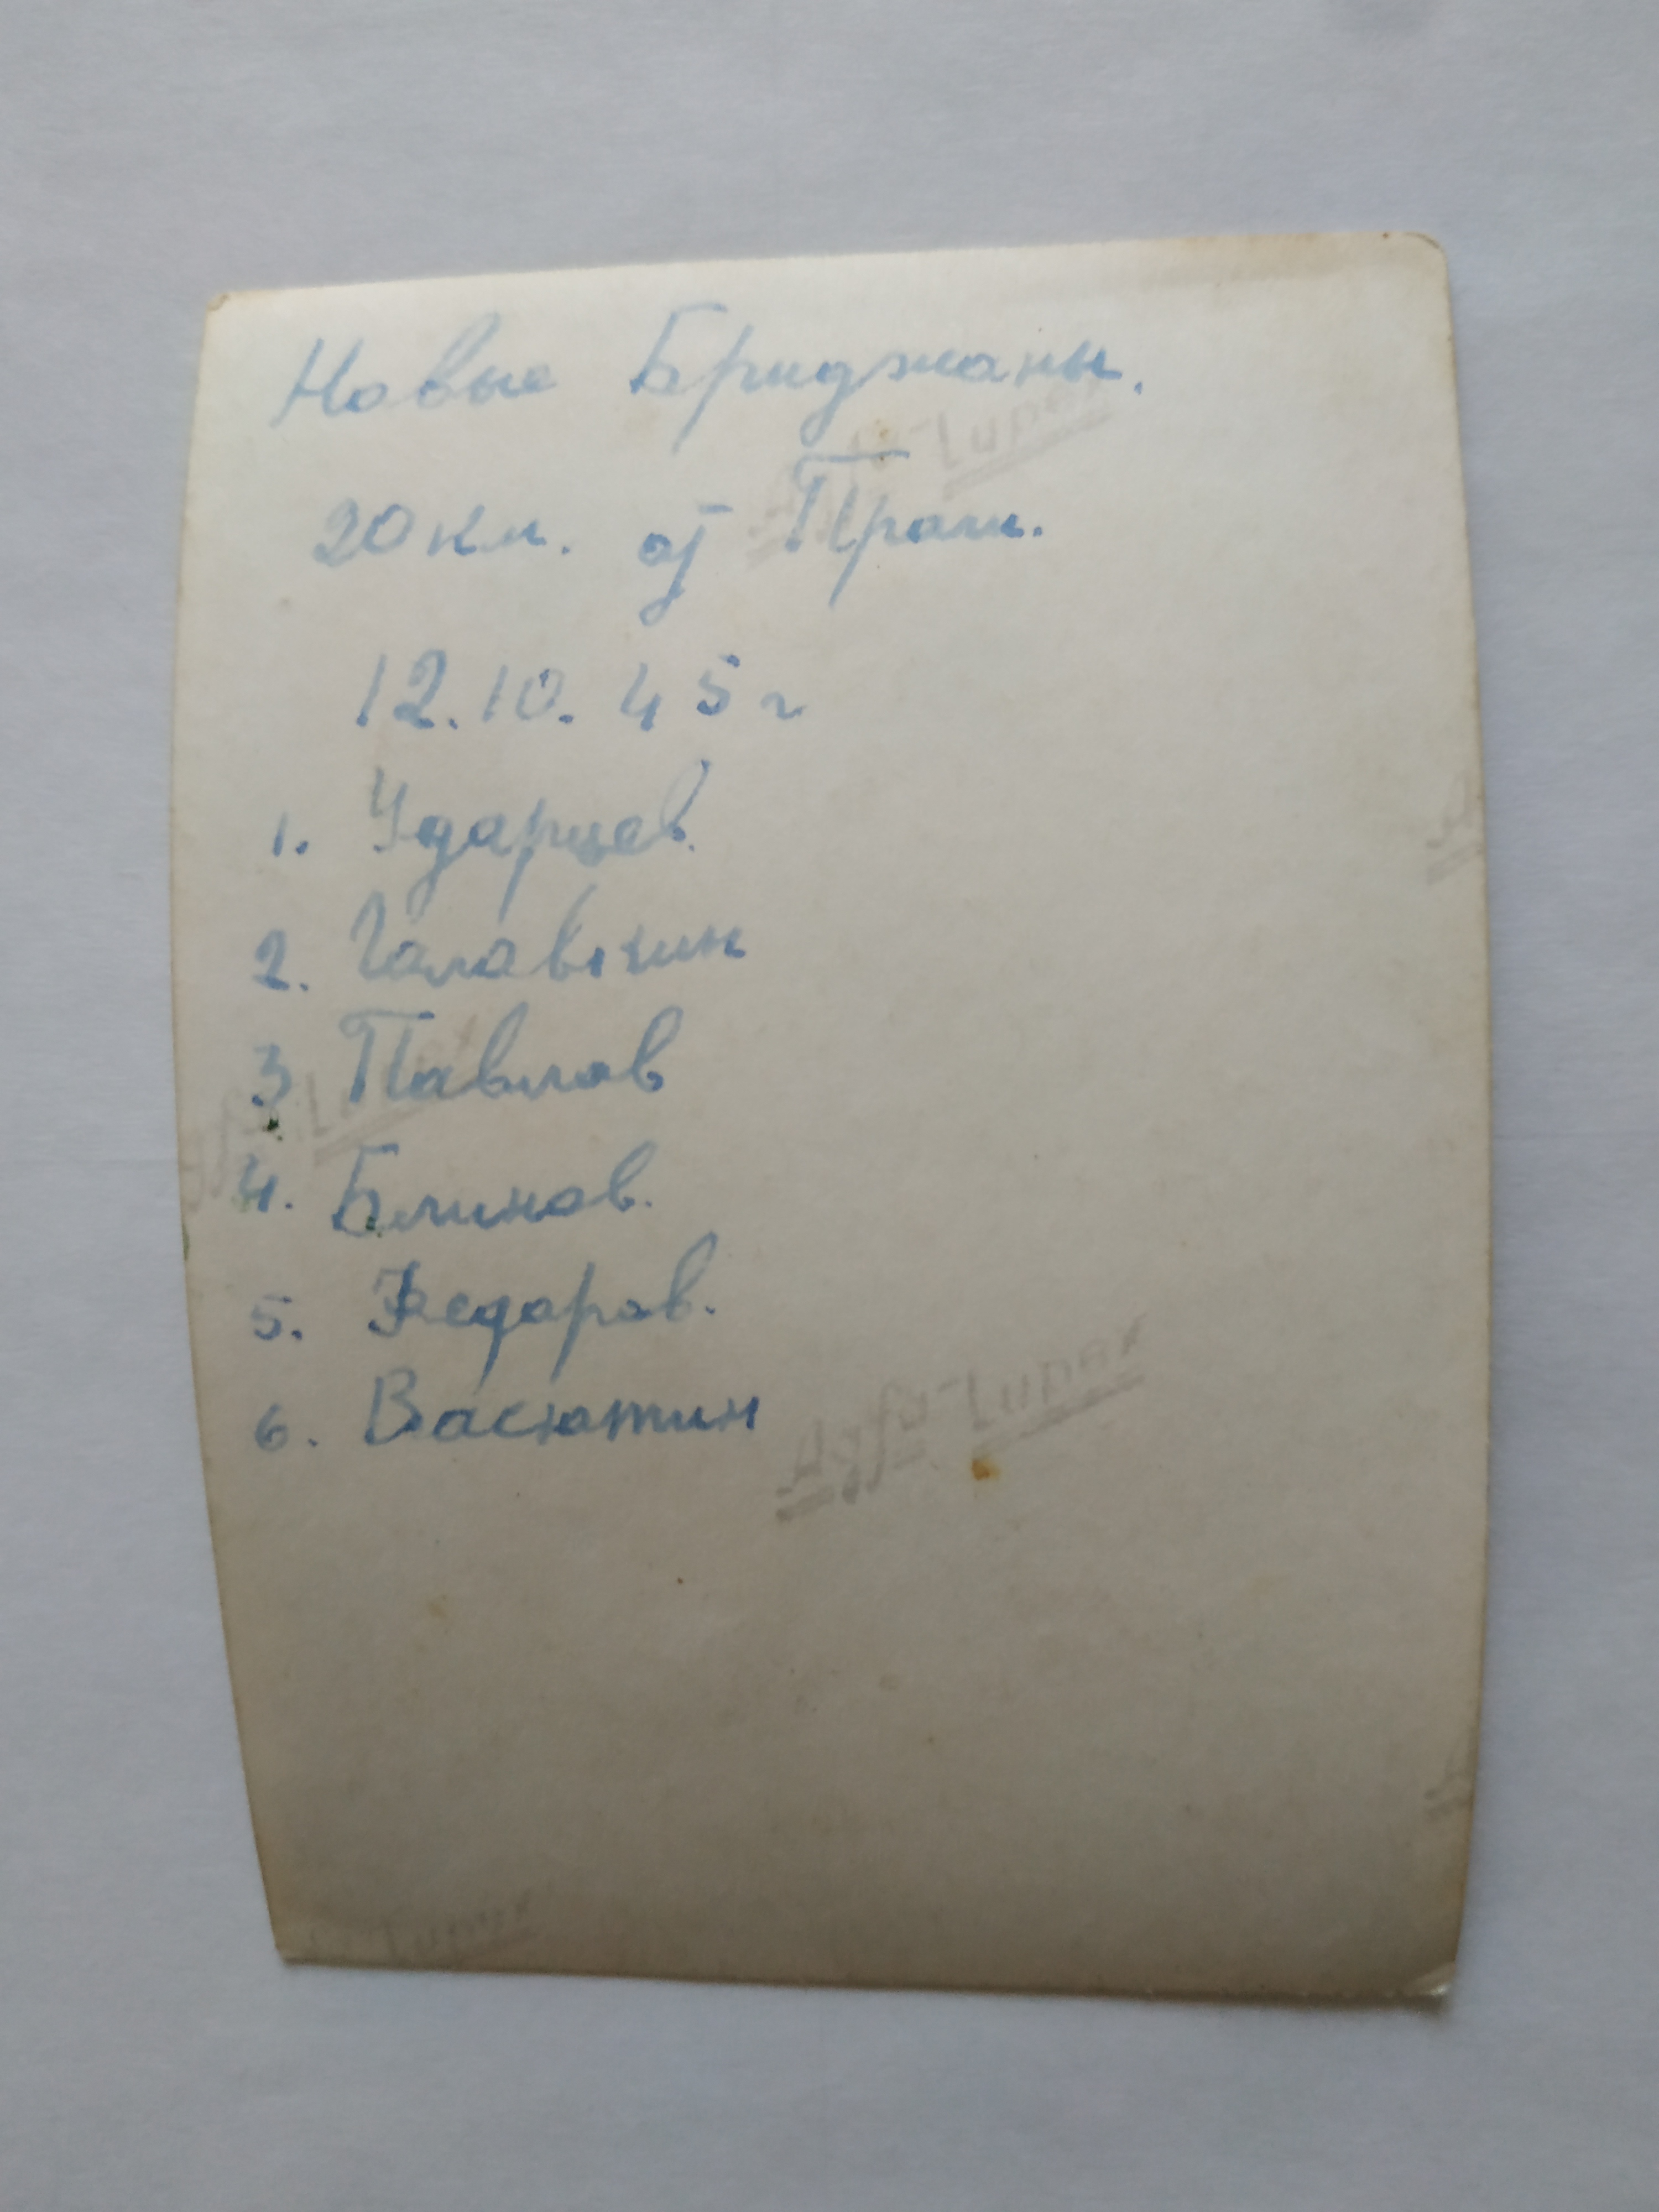 Новые Бриджаны.
20 км. от Праги.
12.10.45 г
1. Ударцев.
2. Галавкин
3 Павлов
4. Блинов.
5. Федоров.
6. Васютин
Agfa-Lupex
Agfa-Lupex